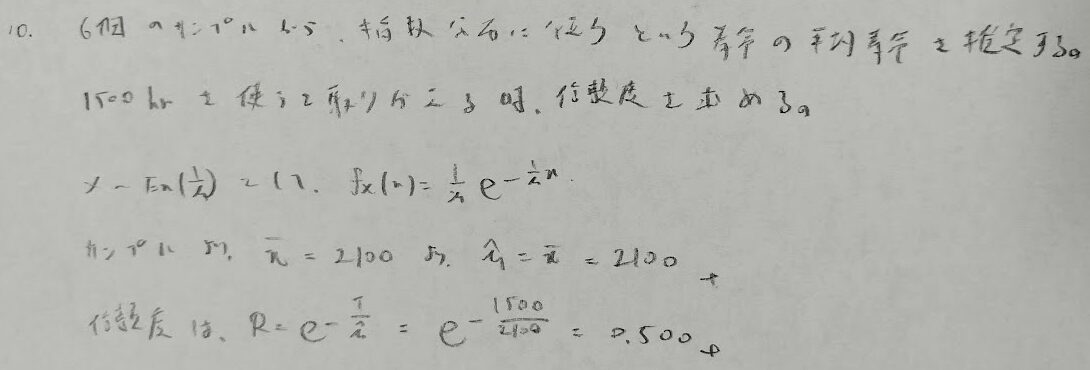 10. 6個のサンプルから、指数分布に従うという寿命の平均寿命を推定する。
1500 hr を使って取りかえる時、信頼度を求める。
X ~ Ex(1/λ) として、 fx(x) = 1/λ e^{-1/λ x}.
サンプルより、 x̄ = 2100 より、 λ̂ = x̄ = 2100
信頼度は、 R = e^{-T/λ} = e^{-1500/2100} = 0.500